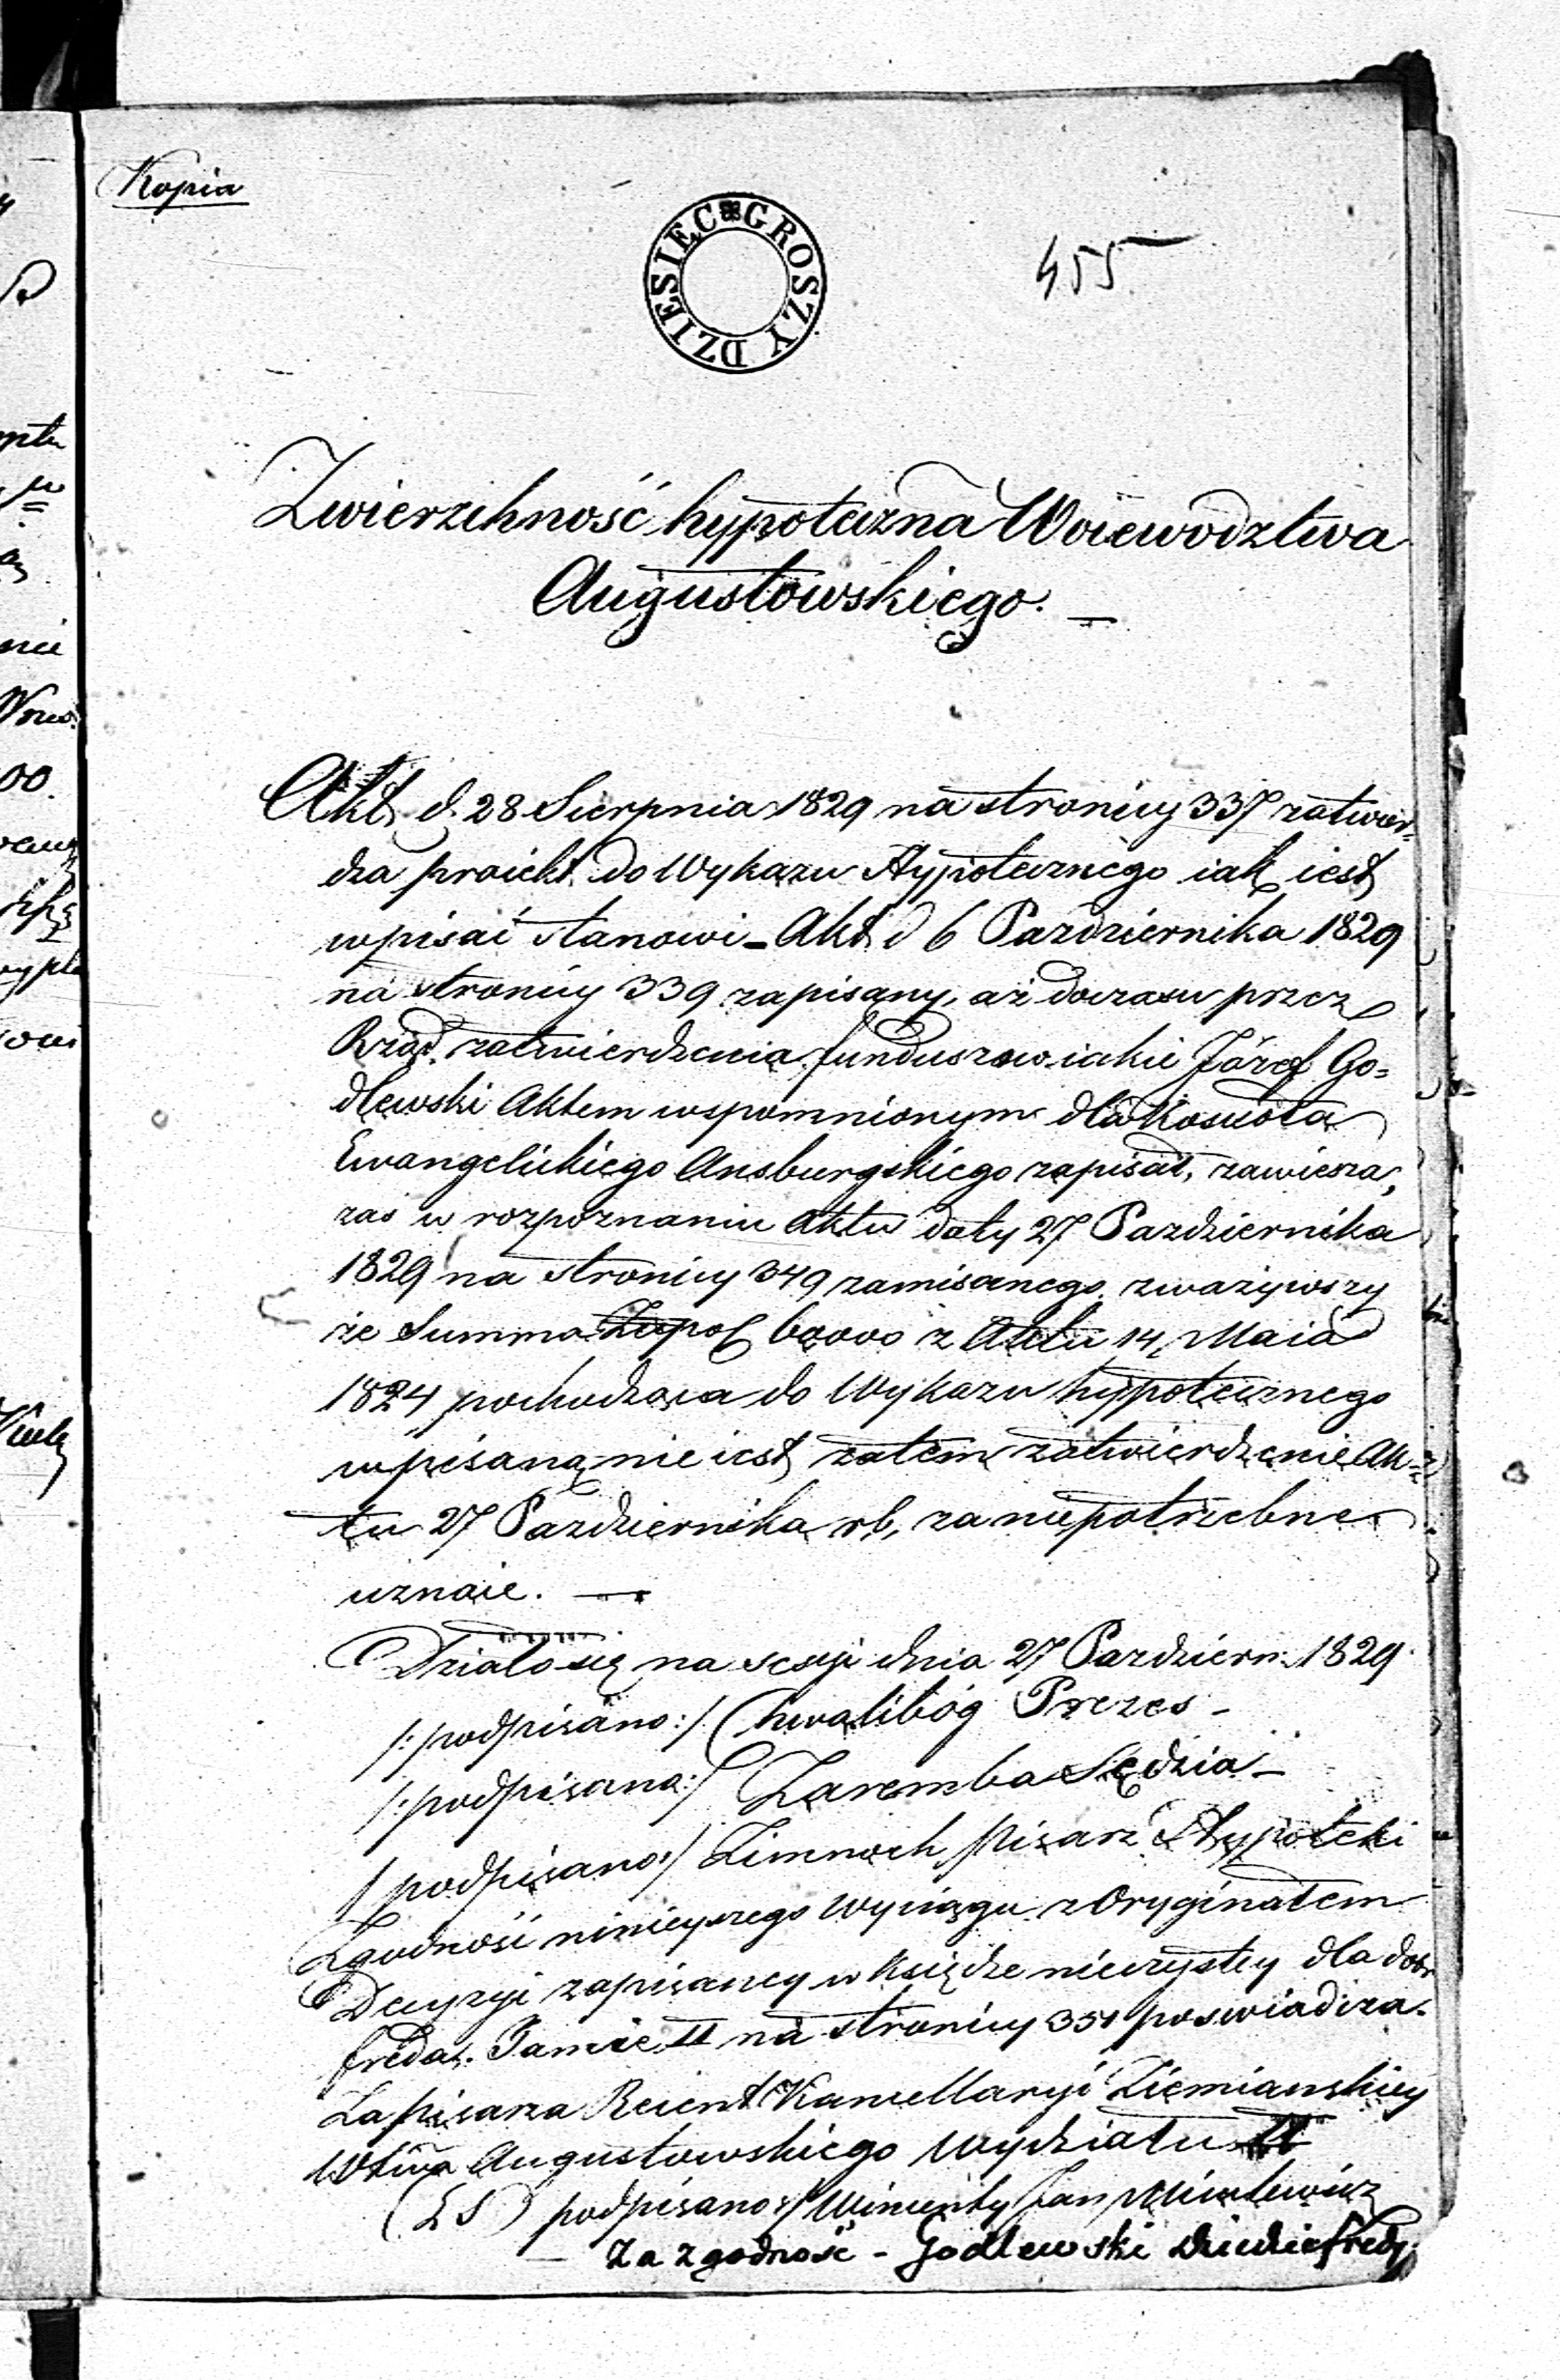 Kopia
DZIESIĘC GROSZY
455
Zwierzchność hypoteczna Woiewodztwa
Augustowskiego. —
Akt d. 28 Sierpnia 1829 na stronicy 337 zatwier=
dza proiekt do Wykazu Hypotecznego iak iest
wpisać stanowi – Akt d 6 Pazdziernika 1829
na stronicy 339 zapisany, aż do czasu przez
Rząd zatwierdzenia funduszow iakie Józef Go=
dlewski Aktem wspomnionym dla Kościoła
Ewangelickiego Ausburgskiego zapisał, zawiesza,
zaś w rozpoznaniu Aktu daty 27 Pazdziernika
1829 na stronicy 349 zamisanego zważywszy
że Summa Złpol 60000 z Aktu 14 Maia
1824 pochodząca do Wykazu hypotecznego
wpisaną nie iest zatem zatwierdzenie Ak=
tu 27 Pazdziernika rb, za niepotrzebne
uznaie. —
Działo się na sessyi dnia 27 Pazdziern: 1829
/:podpisano:/ Chwalibóg Prezes –
/:podpisano:/ Zaremba Sędzia –
/podpisano:/ Zimnoch Pisarz Hypoteki
Zgodność ninieyszego Wyciągu z Oryginałem
Decyzyi zapisaney w Księdze wieczystey dla dobr
Freda. Tamże II na stronicy 351 poswiadcza.
Za pisarza Reient Kancellaryi Ziemianskiey
Wtwa Augustowskiego Wydziału II
(LS) podpisano:/ Wincenty Jan
Za zgodność – Godlewski Dziedzic Fredy